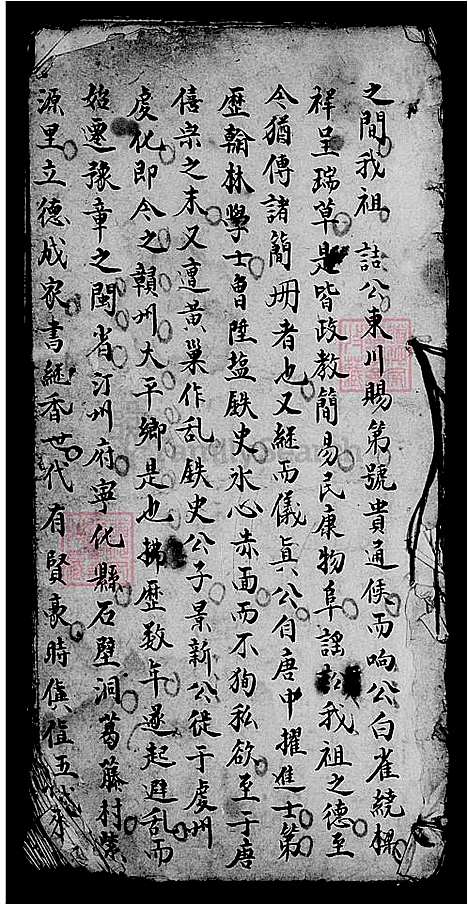 之間我祖 詰公東川賜第號貴通侯而响公白雀繞樑
祥呈瑞草是皆政教簡易民康物阜謠 我祖之德至
今猶傳諸簡冊者也又継而儀真公自唐中擢進士第
歷翰林學士曾陞盐鉄史氷心赤面而不狥私欲至于唐
僖宗之末又遭黄巢作乱鉄史公子景新公徒于虔州
虔化即今之贛州大平鄉是也 歷数年遂起避乱而
始遷豫章之閩省汀州府寧化縣石壁洞葛藤村
源里立德成家書継香世代有賢豪時 值五